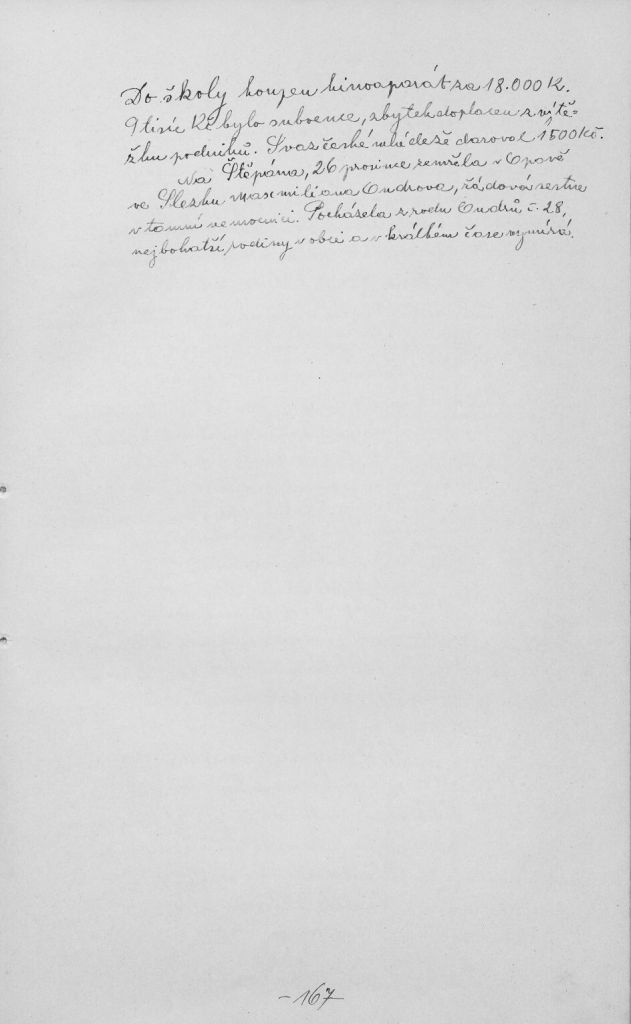 Do školy koupen kinoaparát za 18.000 K.
9 tisíc Kč bylo subvence, zbytek doplacen z výtě-
žku podniků. Svaz české mládeže daroval 1500 Kč.
Na Štěpána, 26 prosince zemřela v Opavě
ve Slezku Maxmiliana Ondrova, řádová sestra
v tamní nemocnici. Pocházela z rodu Ondrů č. 28,
nejbohatší rodiny v obci a v krátkém čase vymírá.
- 167 -